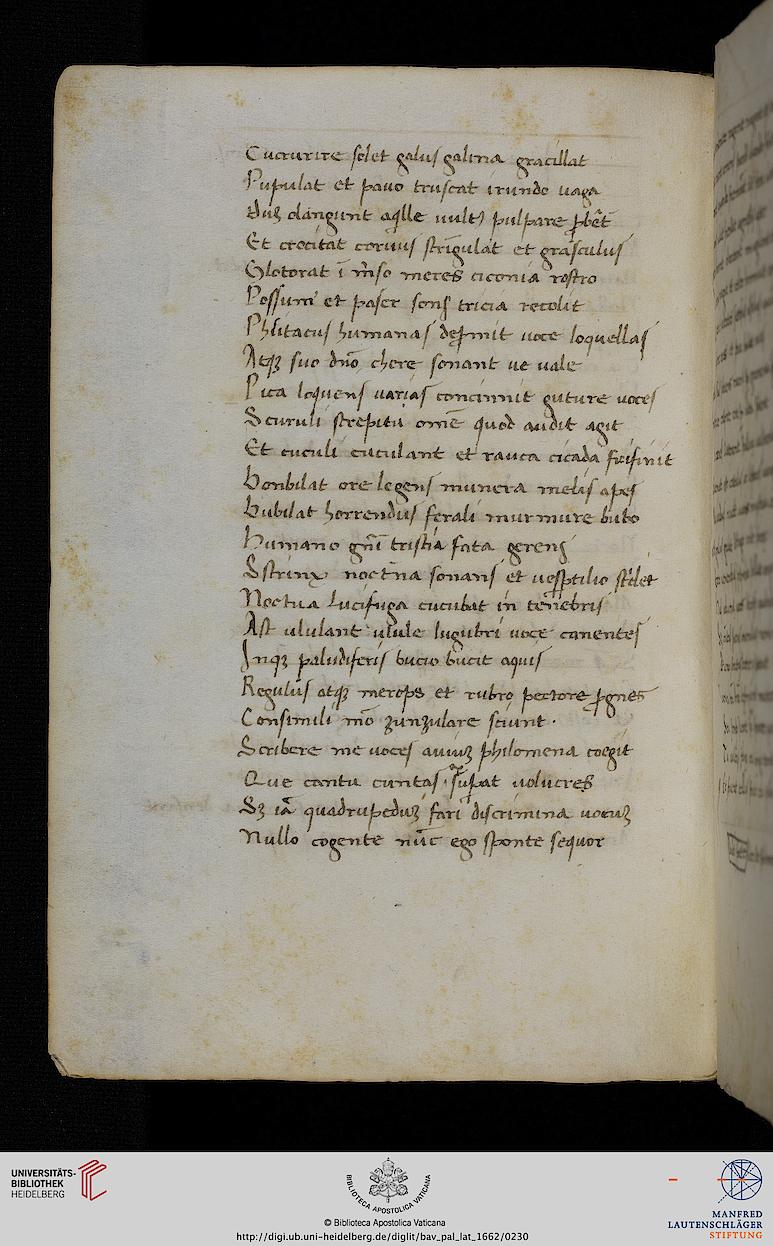 Cucurire solet galus galina gracillat
Pupulat et pavo truscat irundo vaga
Duʒ clangunt aqͥlle vultꝰ pulpare ꝓbēt
Et crocitat corvus fringulat et graculus
Glotorat ī mͬso meres ciconia rostro
Possum et paser sons tricia recolit
Phsitacus humanas deꝓmit voce loquellas
Atqʒ suo dño chere sonant ve vale
Pica loquens varias concinnit guture voces
Scuruli strepitu omē quod audit agit
Et cuculi cuculant et rauca cicada frisinit
Bonbilat ore legens munera melis apes
Bubilat horrendus ferali murmure bubo
Humano gñi tristia fata gerens
Sstrinx noctͧna sonans et vesꝑtilio stͥdet
Noctua Lucifuga cucubat in tenebris
Ast ululant ulule lugubri voce canentes
Inqʒ paludiferis bucio bucit aquis
Regulus atqʒ merops et rubro pectore ꝓgnes
Consimili mō zunzulare sciunt.
Scribere me voces aviuʒ philomena coegit
Que cantu cuntas suꝑat volucres
Sʒ iā quadrupeduʒ fari discrimina vocuʒ
Nullo cogente nūc ego sponte sequor
UNIVERSITÄTS-
BIBLIOTHEK
HEIDELBERG
BIBLIOTECA APOSTOLICA VATICANA
© Biblioteca Apostolica Vaticana
http://digi.ub.uni-heidelberg.de/diglit/bav_pal_lat_1662/0230
MANFRED
LAUTENSCHLÄGER
STIFTUNG